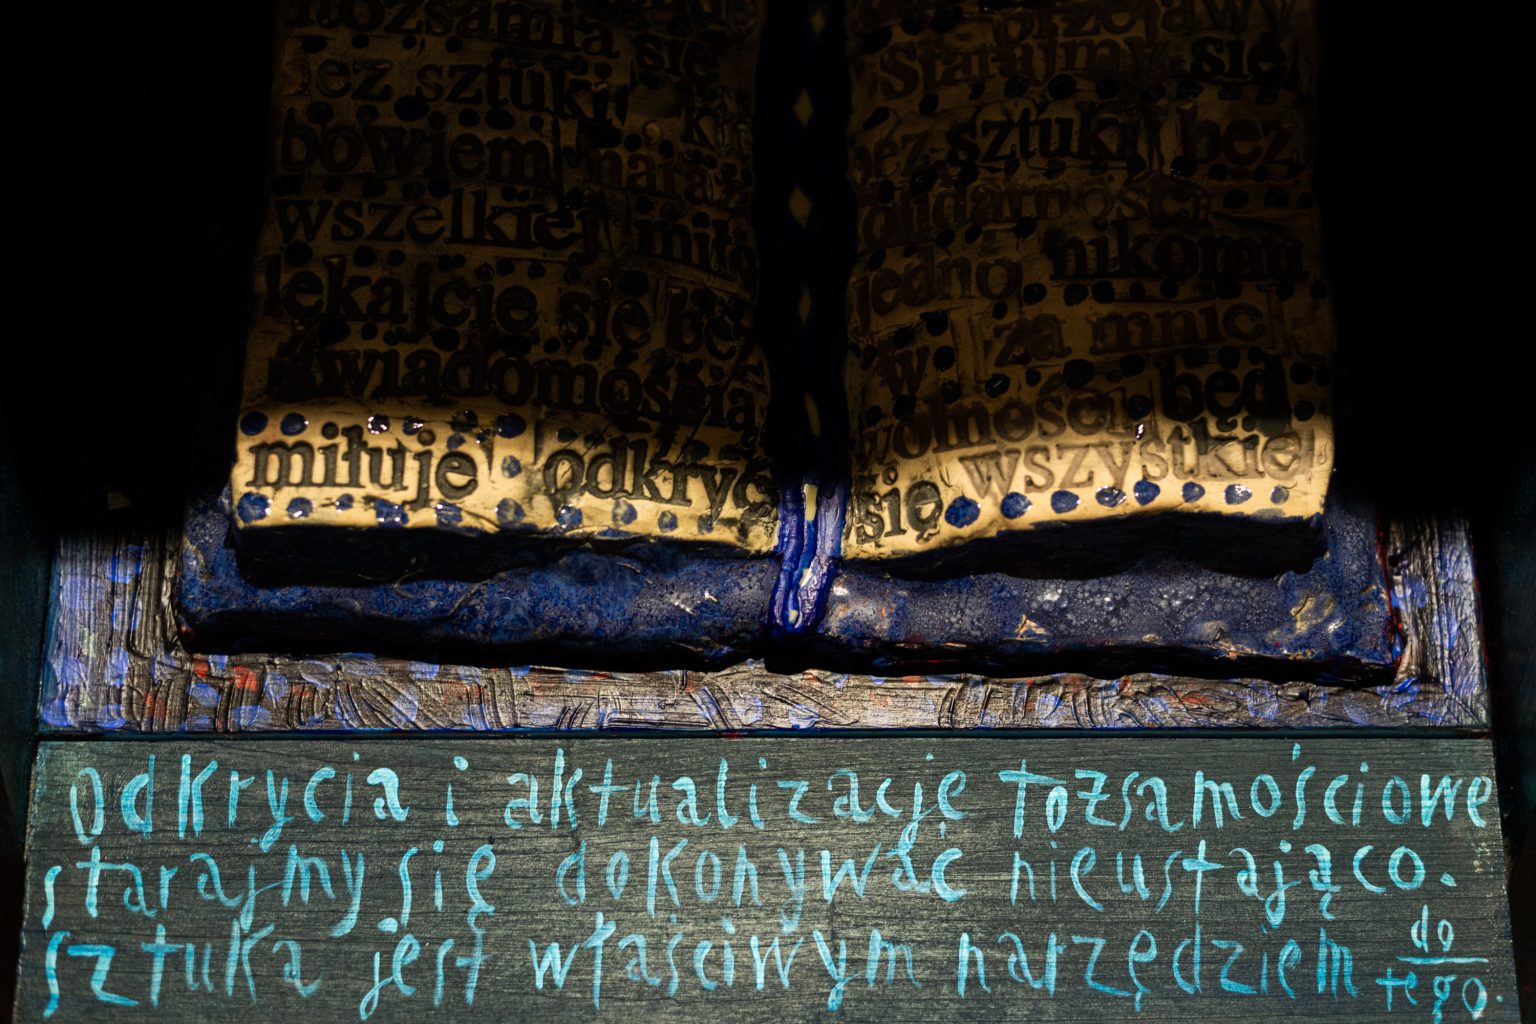 się
bez sztuki
bowiem
wszelkiej
lękajcie się bez
świadomością
miłuje odkryć
przejawy
starajmy się
bez sztuki bez
solidarności
jedno nikomu
w za mnie
wolności będ
się wszystkie
odkrycia i aktualizacje tożsamościowe
starajmy się dokonywać nieustająco.
sztuka jest właściwym narzędziem do tego.